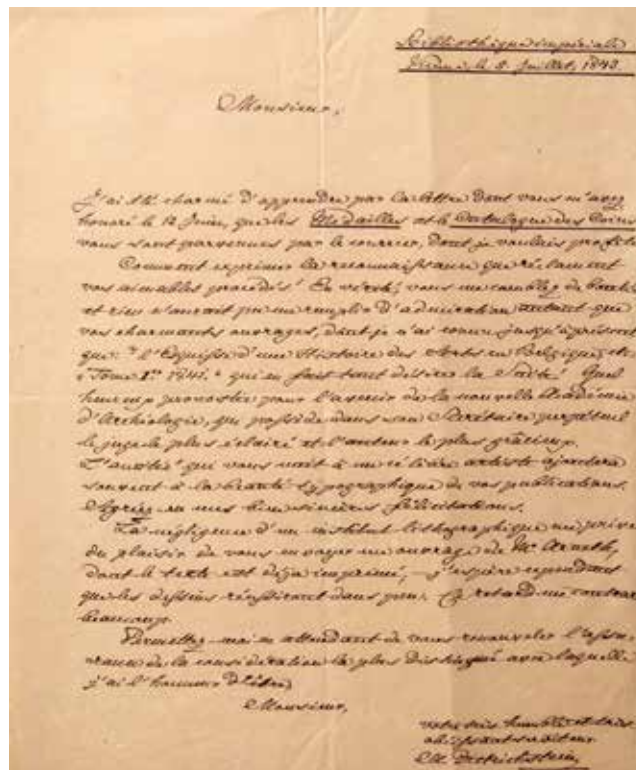 Bibliothèque impériale
Vienne, le 8. Juillet, 1843.
Monsieur,
J'ai été charmé d'apprendre par la lettre dont vous m'avez
honoré le 12 Juin, que les Medailles et le Catalogue des Coins
vous sont parvenues par le courrier, dont je voulais profite
Comment exprimer la reconnaissance que réclament
vos aimables procédés! En vérité, vous me comblez de bontés
et rien n'aurait pu me remplir d'admiration autant que
vos charmants ouvrages, dont je n'ai connu jusqu'à présent
que: "l'Esquisse d'une Histoire des Arts en Belgique etc
Tome 1er 1841." qui en fait tant désirer la Suite! Quel
heureux pronostic pour l'avenir de la nouvelle Académie
d'Archéologie, qui possède dans son Secrétaire perpétuel
le juge le plus éclairé et l'auteur le plus gracieux.
L'amitié qui vous unit à un célèbre artiste ajoutera
souvent à la beauté typographique de vos publications.
Agréez en mes bien sincères félicitations.
La négligence d'un institut lithographique me prive
du plaisir de vous envoyer un ouvrage de Mr Arneth,
dont le texte est déja imprimé, – j'espère cependant
que les dessins réussiront dans peu. Ce retard me contrar
beaucoup.
Permettez-moi en attendant de vous renouveler l'assu-
rance de la considération la plus distingué avec laquelle
j'ai l'honneur d'être,
Monsieur,
votre très humble et très
obéissant serviteur
Dietrichstein